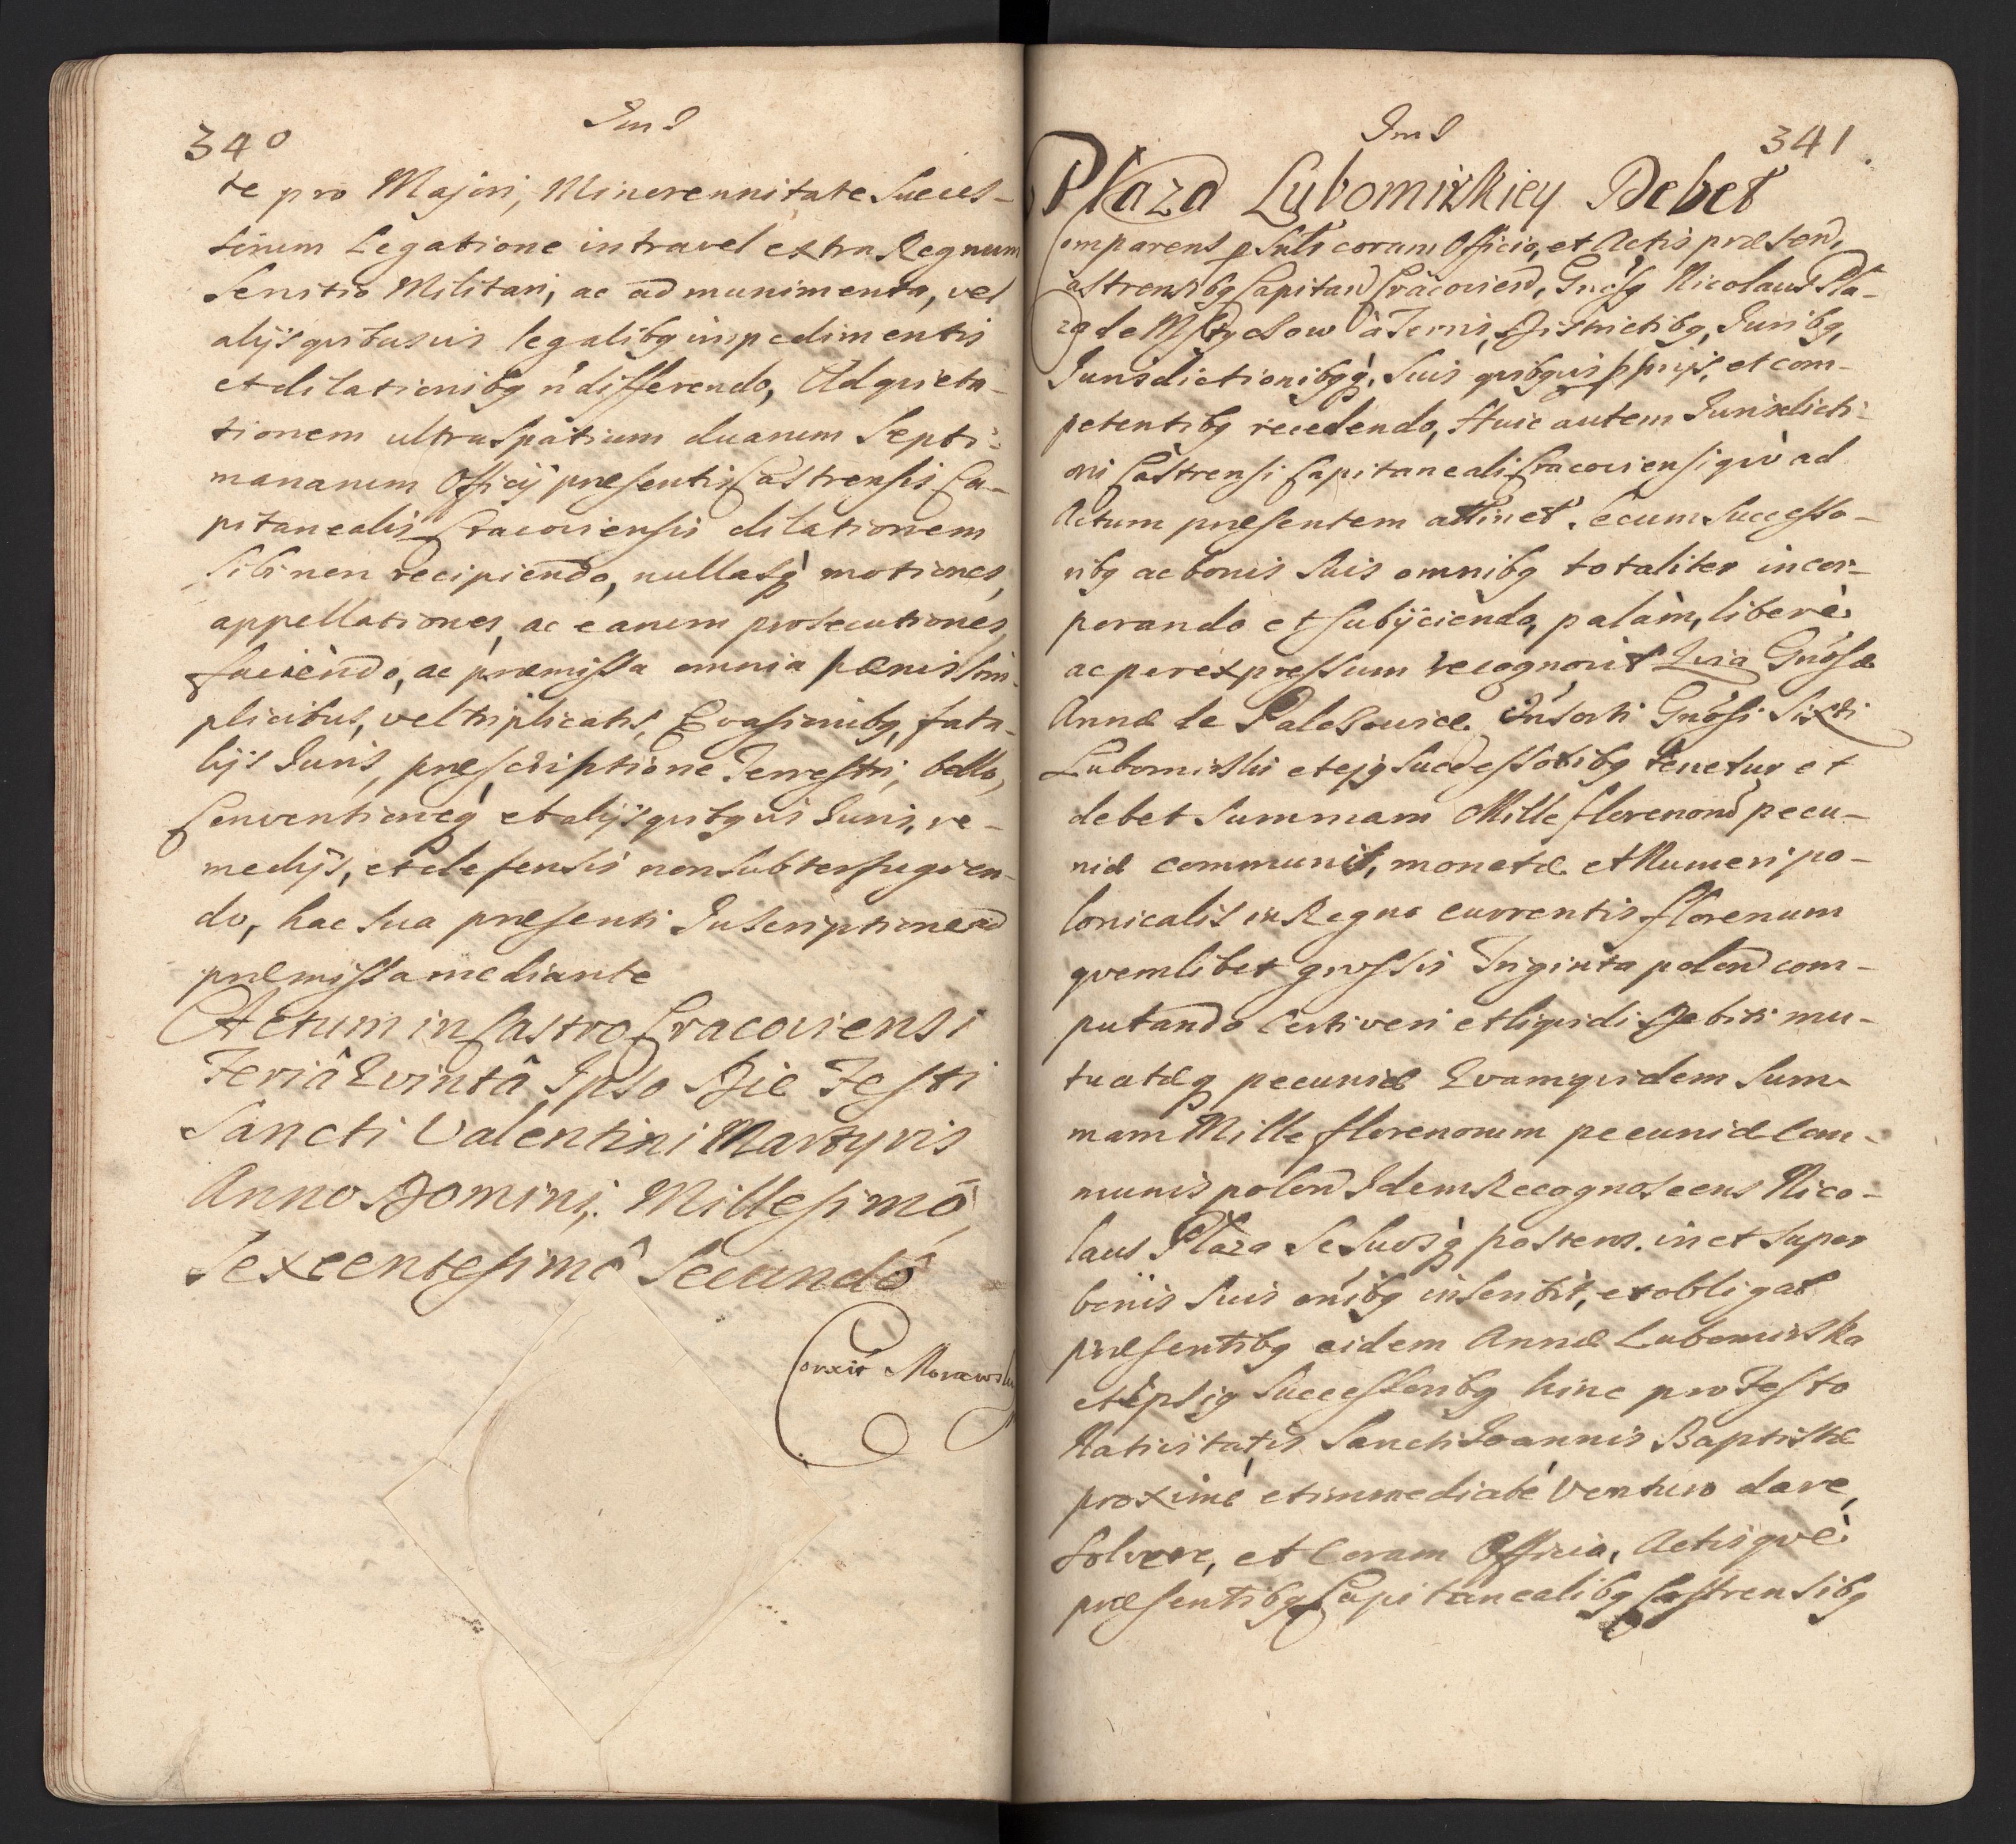 340
te pro Majori, Minorennitate Succes-
sorum Legatione intra vel extra Regnum
Servitio Militari, ac ad munimenta, vel
alijs quibusvis legalibq impedimentis
et dilationibq ń differendo, Ad quieta-
tionem ultra spatium duarum Septi-
manarum Officij præsentis Castrensis Ca-
pitanealis Cracoviensis dilationem
sibi non recipiendo, nullasq motiones,
appellationes, ac earum prosecutiones
faciendo, ac præmissa omnia pænis sim-
plicibus, vel triplicatis, Evasionibq, fata-
lijs Juris, præscriptione Terrestri, bello,
Conventioneq et alijs quibqvis Juris, re-
medijs, et defensis non subterfugien-
do, hac sua præsenti Inscriptione ad
præmissa mediante
Actum in Castro Cracoviensi
Feriâ Quintâ Ipso Die Festi
Sancti Valentini Martyris
Anno Domini, Millesimô
Sexcentesimô Secundô
Correxit Morawski
341
Plaza Lubomirskiey Debet
Comparens psńlr coram Officio, et Actis præsend,
Castrensibq Capitand Cracoviend, Gńosq Nicolaus Pla-
za de Mstyczow à Terris, Districtibq, Juribq,
Jurisdictionibqq, suis quibqvis pprijs, et com-
petentibq recedendo, Huic autem Jurisdicti-
oni Castrensi Capitaneali Cracoviensi qvò ad
Actum præsentem attinet, se cum Successo-
ribq ac bonis suis omnibq totaliter incor-
porando et subijciendo, palàm, liberè
ac per expressum recognovit Quia Gńosæ
Annæ de Paleśnice Consorti Gńosi Sixti
Lubomirski et ejq Successoribq tenetur et
debet Summam Mille florenord pecu-
niæ communis, monetæ et Numeri po-
lonicalis in Regno currentis florenum
qvemlibet grossis Triginta polond com-
putando Certi veri et liqvidi Debiti mu-
tuatæq pecuniæ Qvamqvidem Sum-
mam Mille florenorum pecuniæ Com-
munis polond Idem Recognoscens Nico-
laus Plaza Se Suosq posteros in et super
bonis suis oḿibq inscribit, et obligat
præsentibq eidem Annæ Lubomirska
et Ipsiq Successoribq hinc pro Festo
Nativitatis Sancti Joannis Baptistæ
proximé et immediaté venturo dare,
solvere, et Coram Officio, Actisqvè
præsentibq Capitanealibq Castrensibq